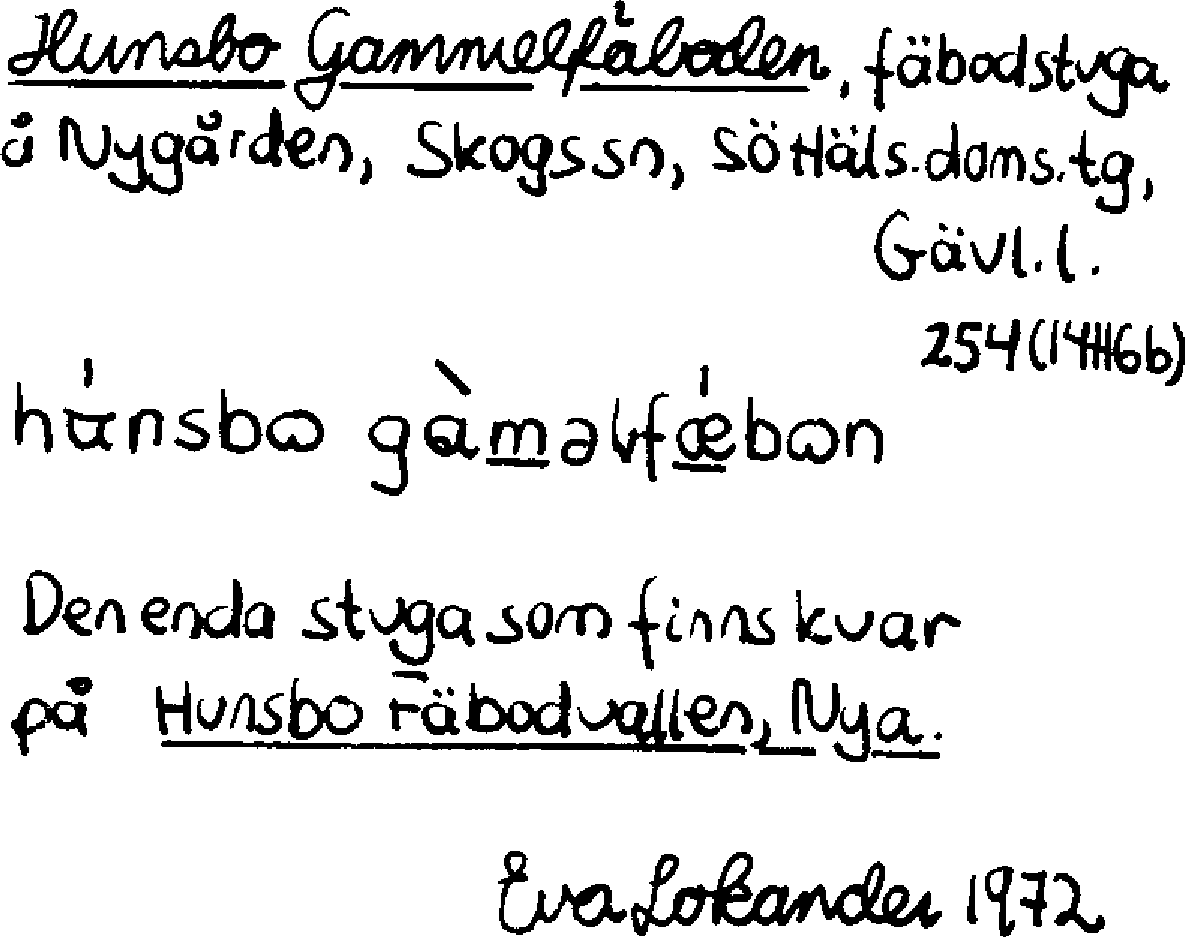 Hunsbo Gammelfäboden, fäbodstuga
å Nygården, Skogs sn, Sö Häls. doms. tg,
Gävl. l.
254 (14H6b)
hʉ́nsbω gàm̲əɫfǽ̲bωn
Den enda stuga som finns kvar
på Hunsbo Fäbodvallen, Nya.
Eva Lokander 1972